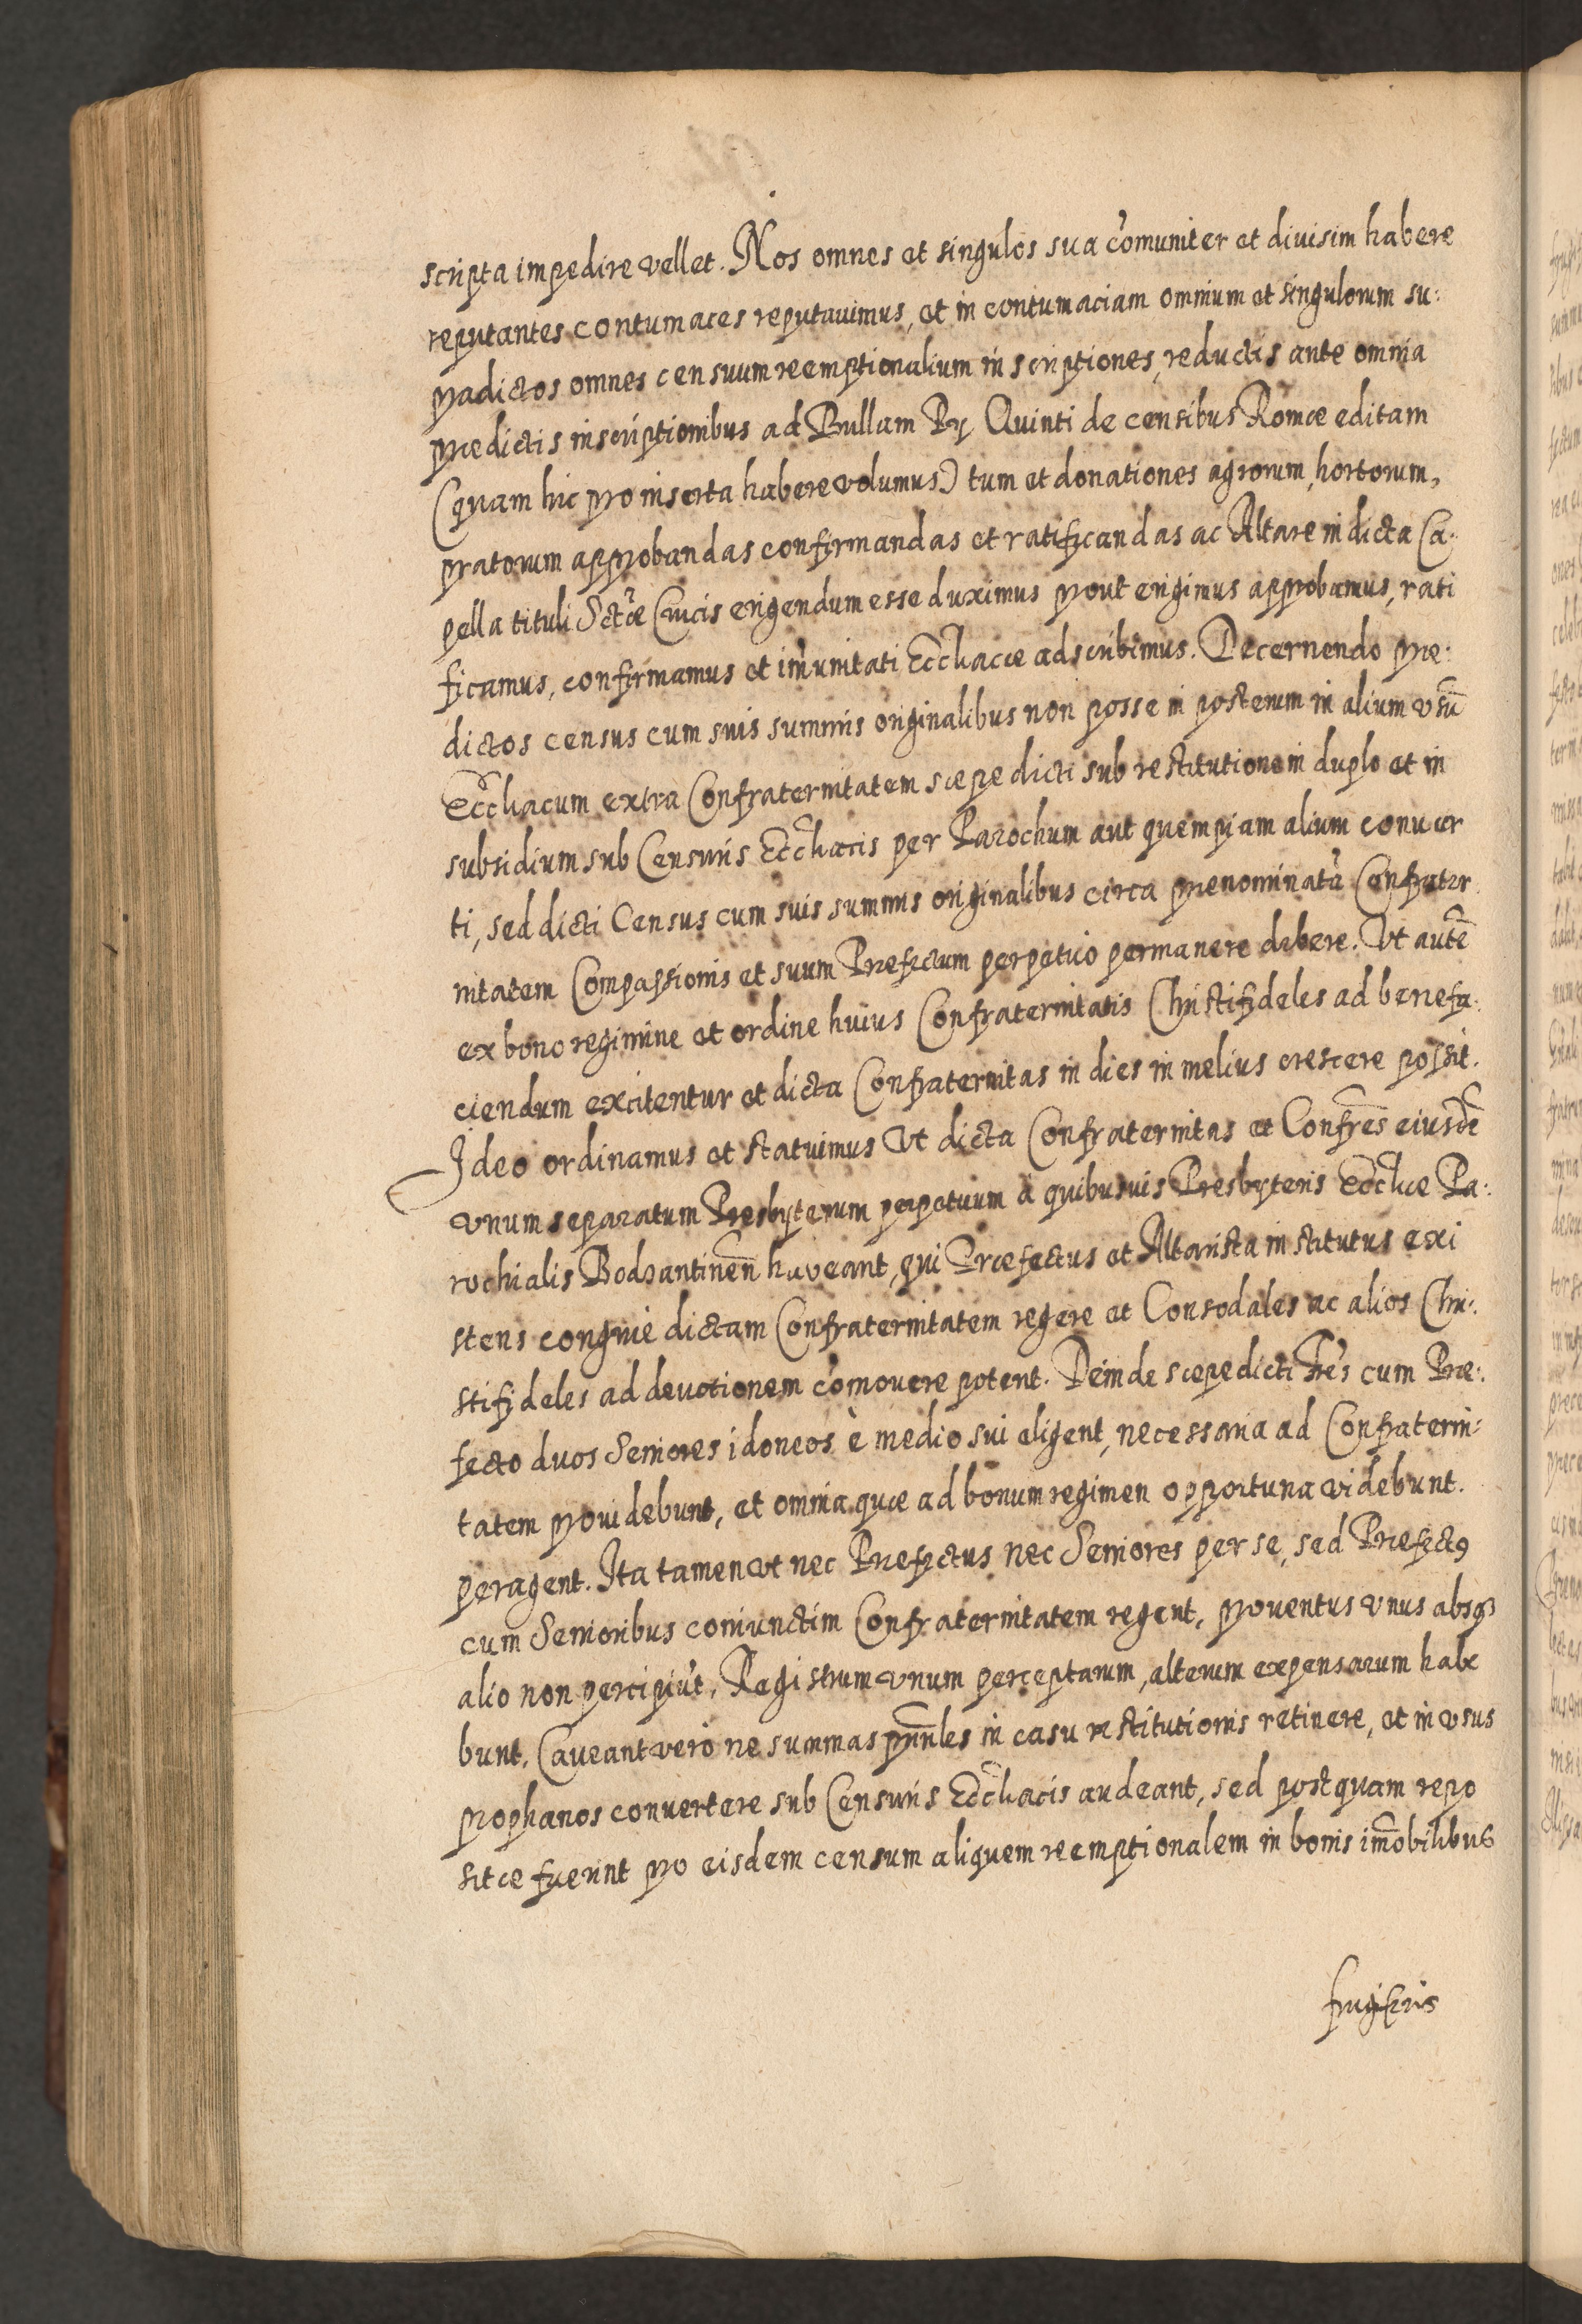 scripta impedire vellet. Nos omnes et singulos sua com̃uniter et diuisim habere
reputantes contumaces reputauimus, et in contumaciam omnium et singulorum su:
pradictos omnes censuum reemptionalium inscriptiones, reductis ante omnia
prædictis inscriptionibus ad Bullam Pij Quinti de censibus Romæ editam
(quam hic pro inserta habere volumus) tum et donationes agrorum, hortorum,
pratorum approbandas confirmandas et ratificandas ac Altare in dicta Ca:
pella tituli Sctæ Crucis erigendum esse duximus prout erigimus approbamus, rati
ficamus, confirmamus et im̃unitati Ecc̃liacæ adscribimus. Decernendo præ:
dictos census cum suis summis originalibus non posse in posterum in alium vsũ
Ecc̃liacum extra Confraternitatem sæpe dicti sub restitutione in duplo et in
subsidium sub Censuris Ecc̃liacis per Parochum aut quempiam alium conuer
ti, sed dicti Census cum suis summis originalibus circa prænominatã Confrater
nitatem Compassionis et suum Præfectum perpetuo permanere debere. Vt autẽ
ex bono regimine et ordine huius Confraternitatis Christifideles ad benefa:
ciendum excitentur et dicta Confraternitas in dies in melius crescere possit.
Ideo ordinamus et statuimus Vt dicta Confraternitas et Confrẽs eiusdẽ
vnum separatum Presbyterum perpetuum à quibusuis Presbyteris Ecc̃liæ Pa:
rochialis Bodzantinen̄ habeant, qui Præfectus et Altarista institutus exi
stens congrue dictam Confraternitatem regere et Consodales ac alios Chri:
stifideles ad deuotionem com̃ouere potent. Deinde sæpedicti Frẽs cum Præ:
fecto duos Seniores idoneos è medio sui eligent, necessaria ad Confraterni:
tatem prouidebunt, et omnia quæ ad bonum regimen opportuna videbunt.
peragent. Ita tamen vt nec Præfectus nec Seniores per se, sed Præfectꝰ
cum Senioribus coniunctim Confraternitatem regent, prouentus vnus absqꝫ
alio non percipiũt, Registrum vnum perceptarum, alterum expensarum habe
bunt. Caueant vero ne summas prin̄les in casu restitutionis retinere, et in vsus
prophanos conuertere sub Censuris Ecc̃liacis audeant, sed postquam repo
sitæ fuerint pro eisdem censum aliquem reemptionalem in bonis im̃obilibus
frugiferis